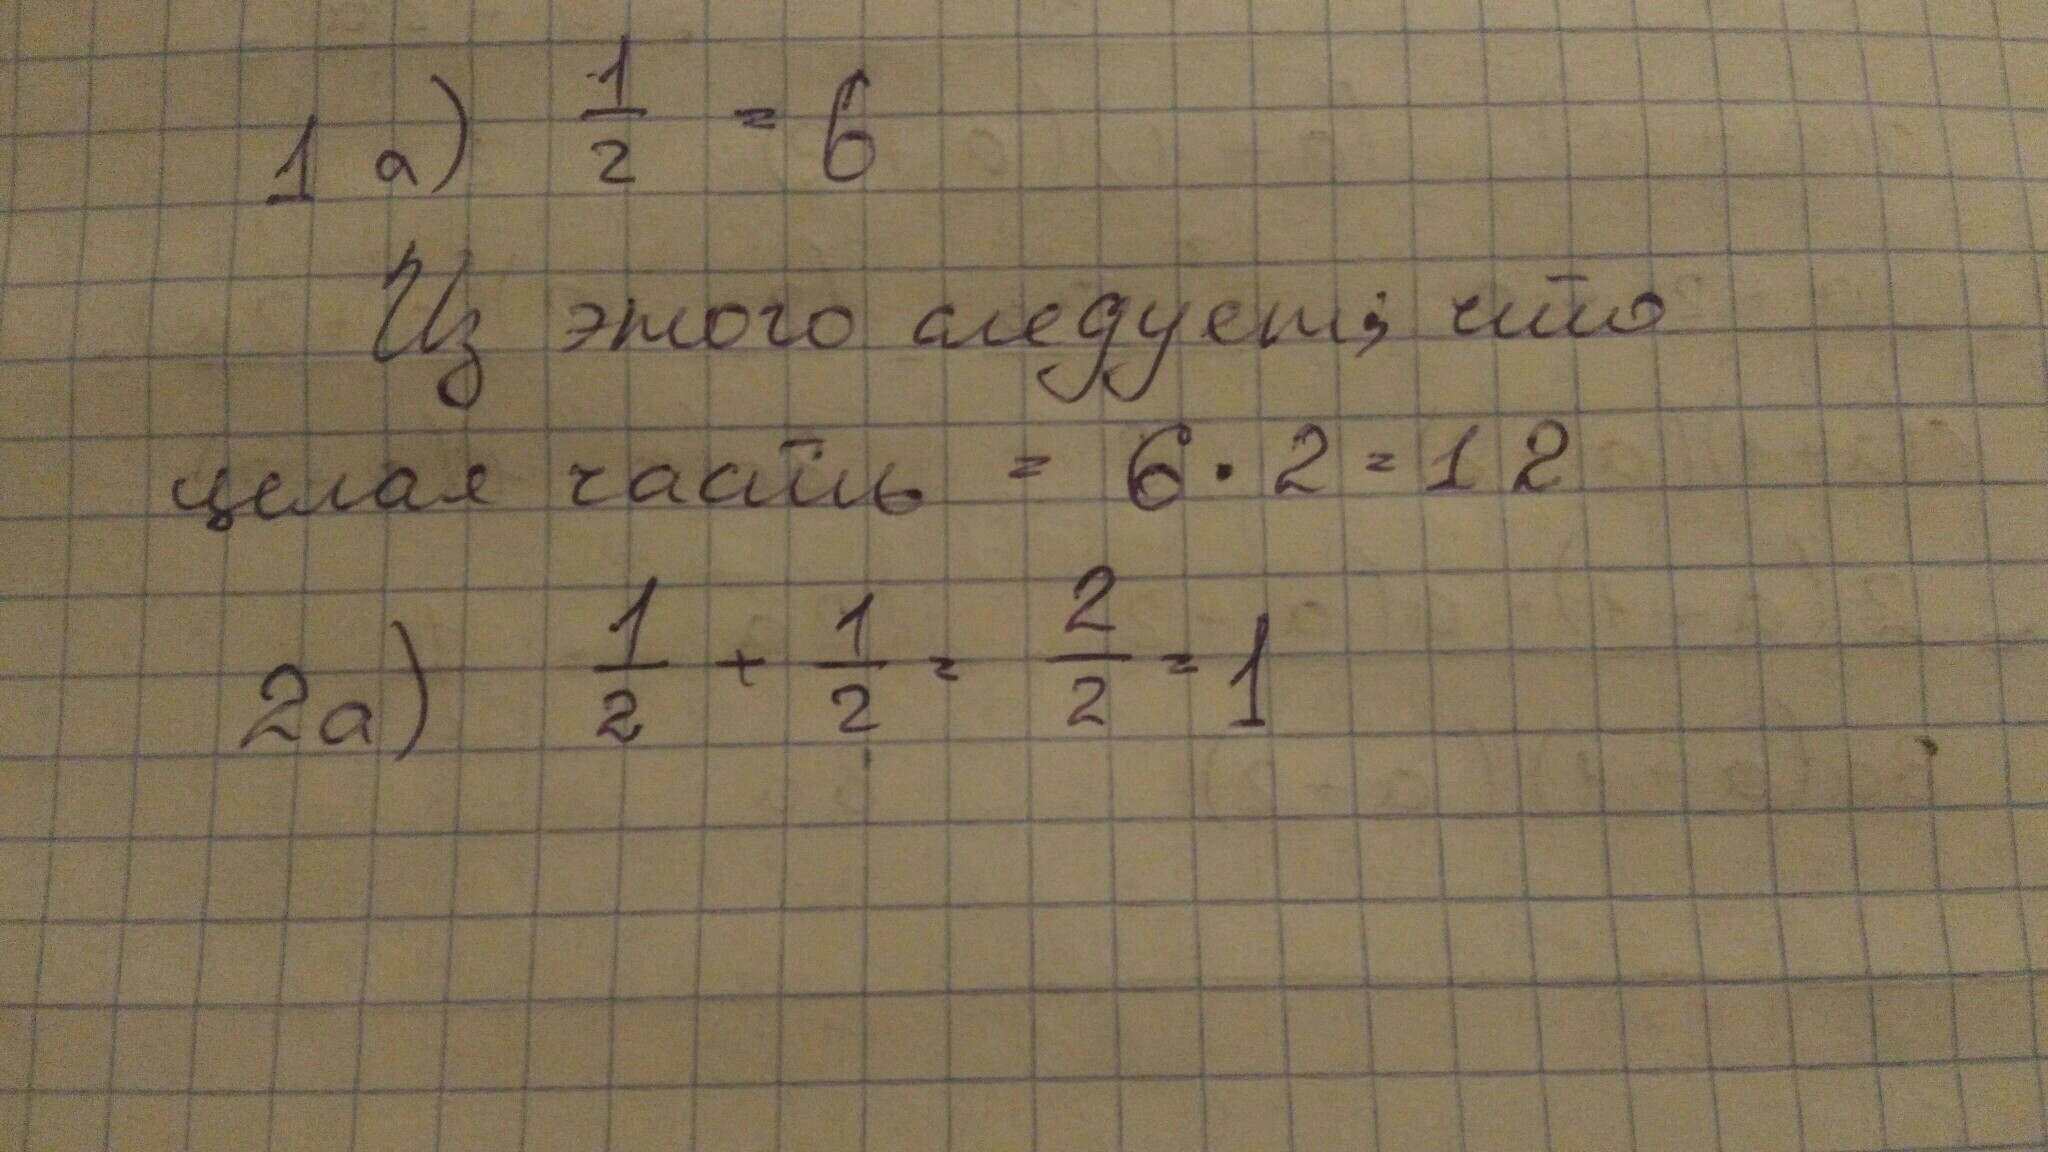 1 а) 1/2 = 6
Из этого следует, что
целая часть = 6 · 2 = 12
2а) 1/2 + 1/2 = 2/2 = 1